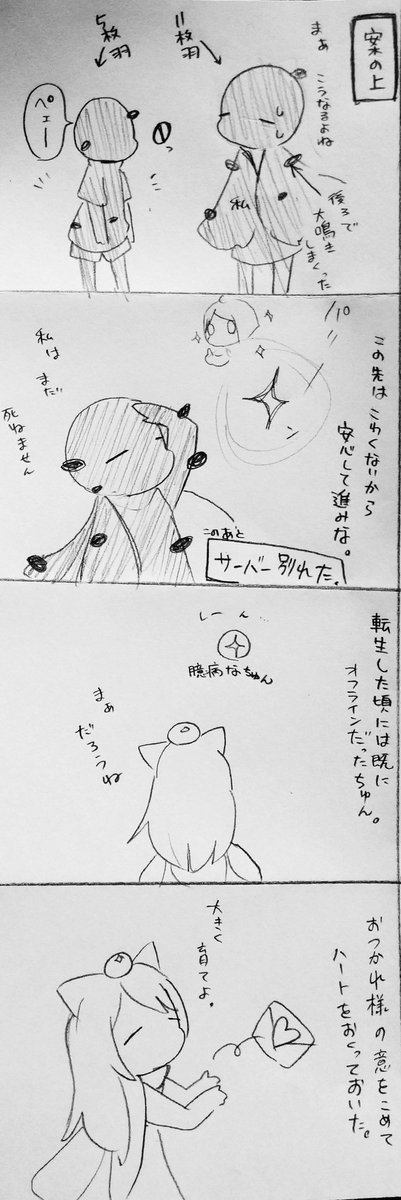 案の上
まぁ
こうなるよね
11枚羽
5枚羽
ペェー
私
後ろで
大鳴き
しまくった
この先はこわくないから
安心して進みな。
パ
ン
私は
まだ
死ねません
このあと
サーバー別れた。
転生した頃には既に
オフラインだったちゅん。
しーん…
臆病なちゅん
まぁ
だろうね
おつかれ様の意をこめて
ハートをおくっておいた。
大きく
育てよ。